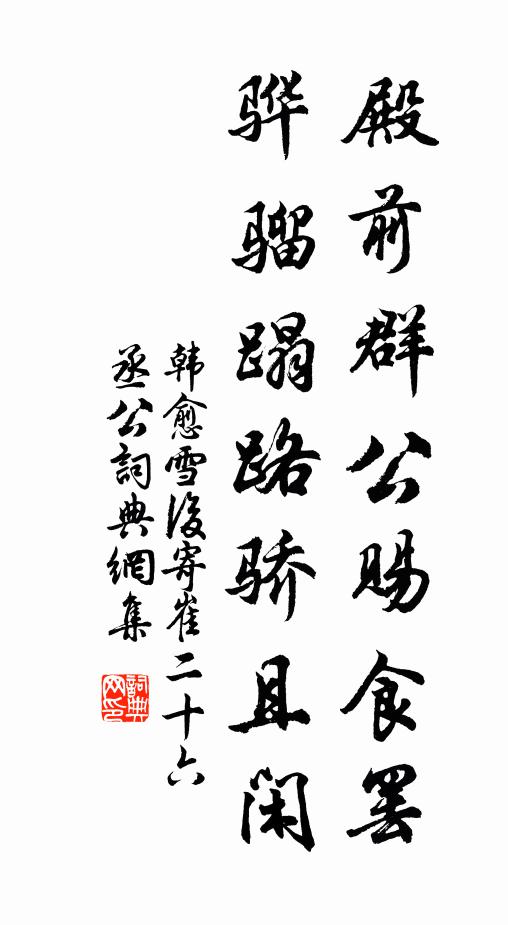 殿前群公赐食罢
骅骝蹋路骄且闲
韩愈雪後寄崔二十六
丞公詞典網集
詞典
网印